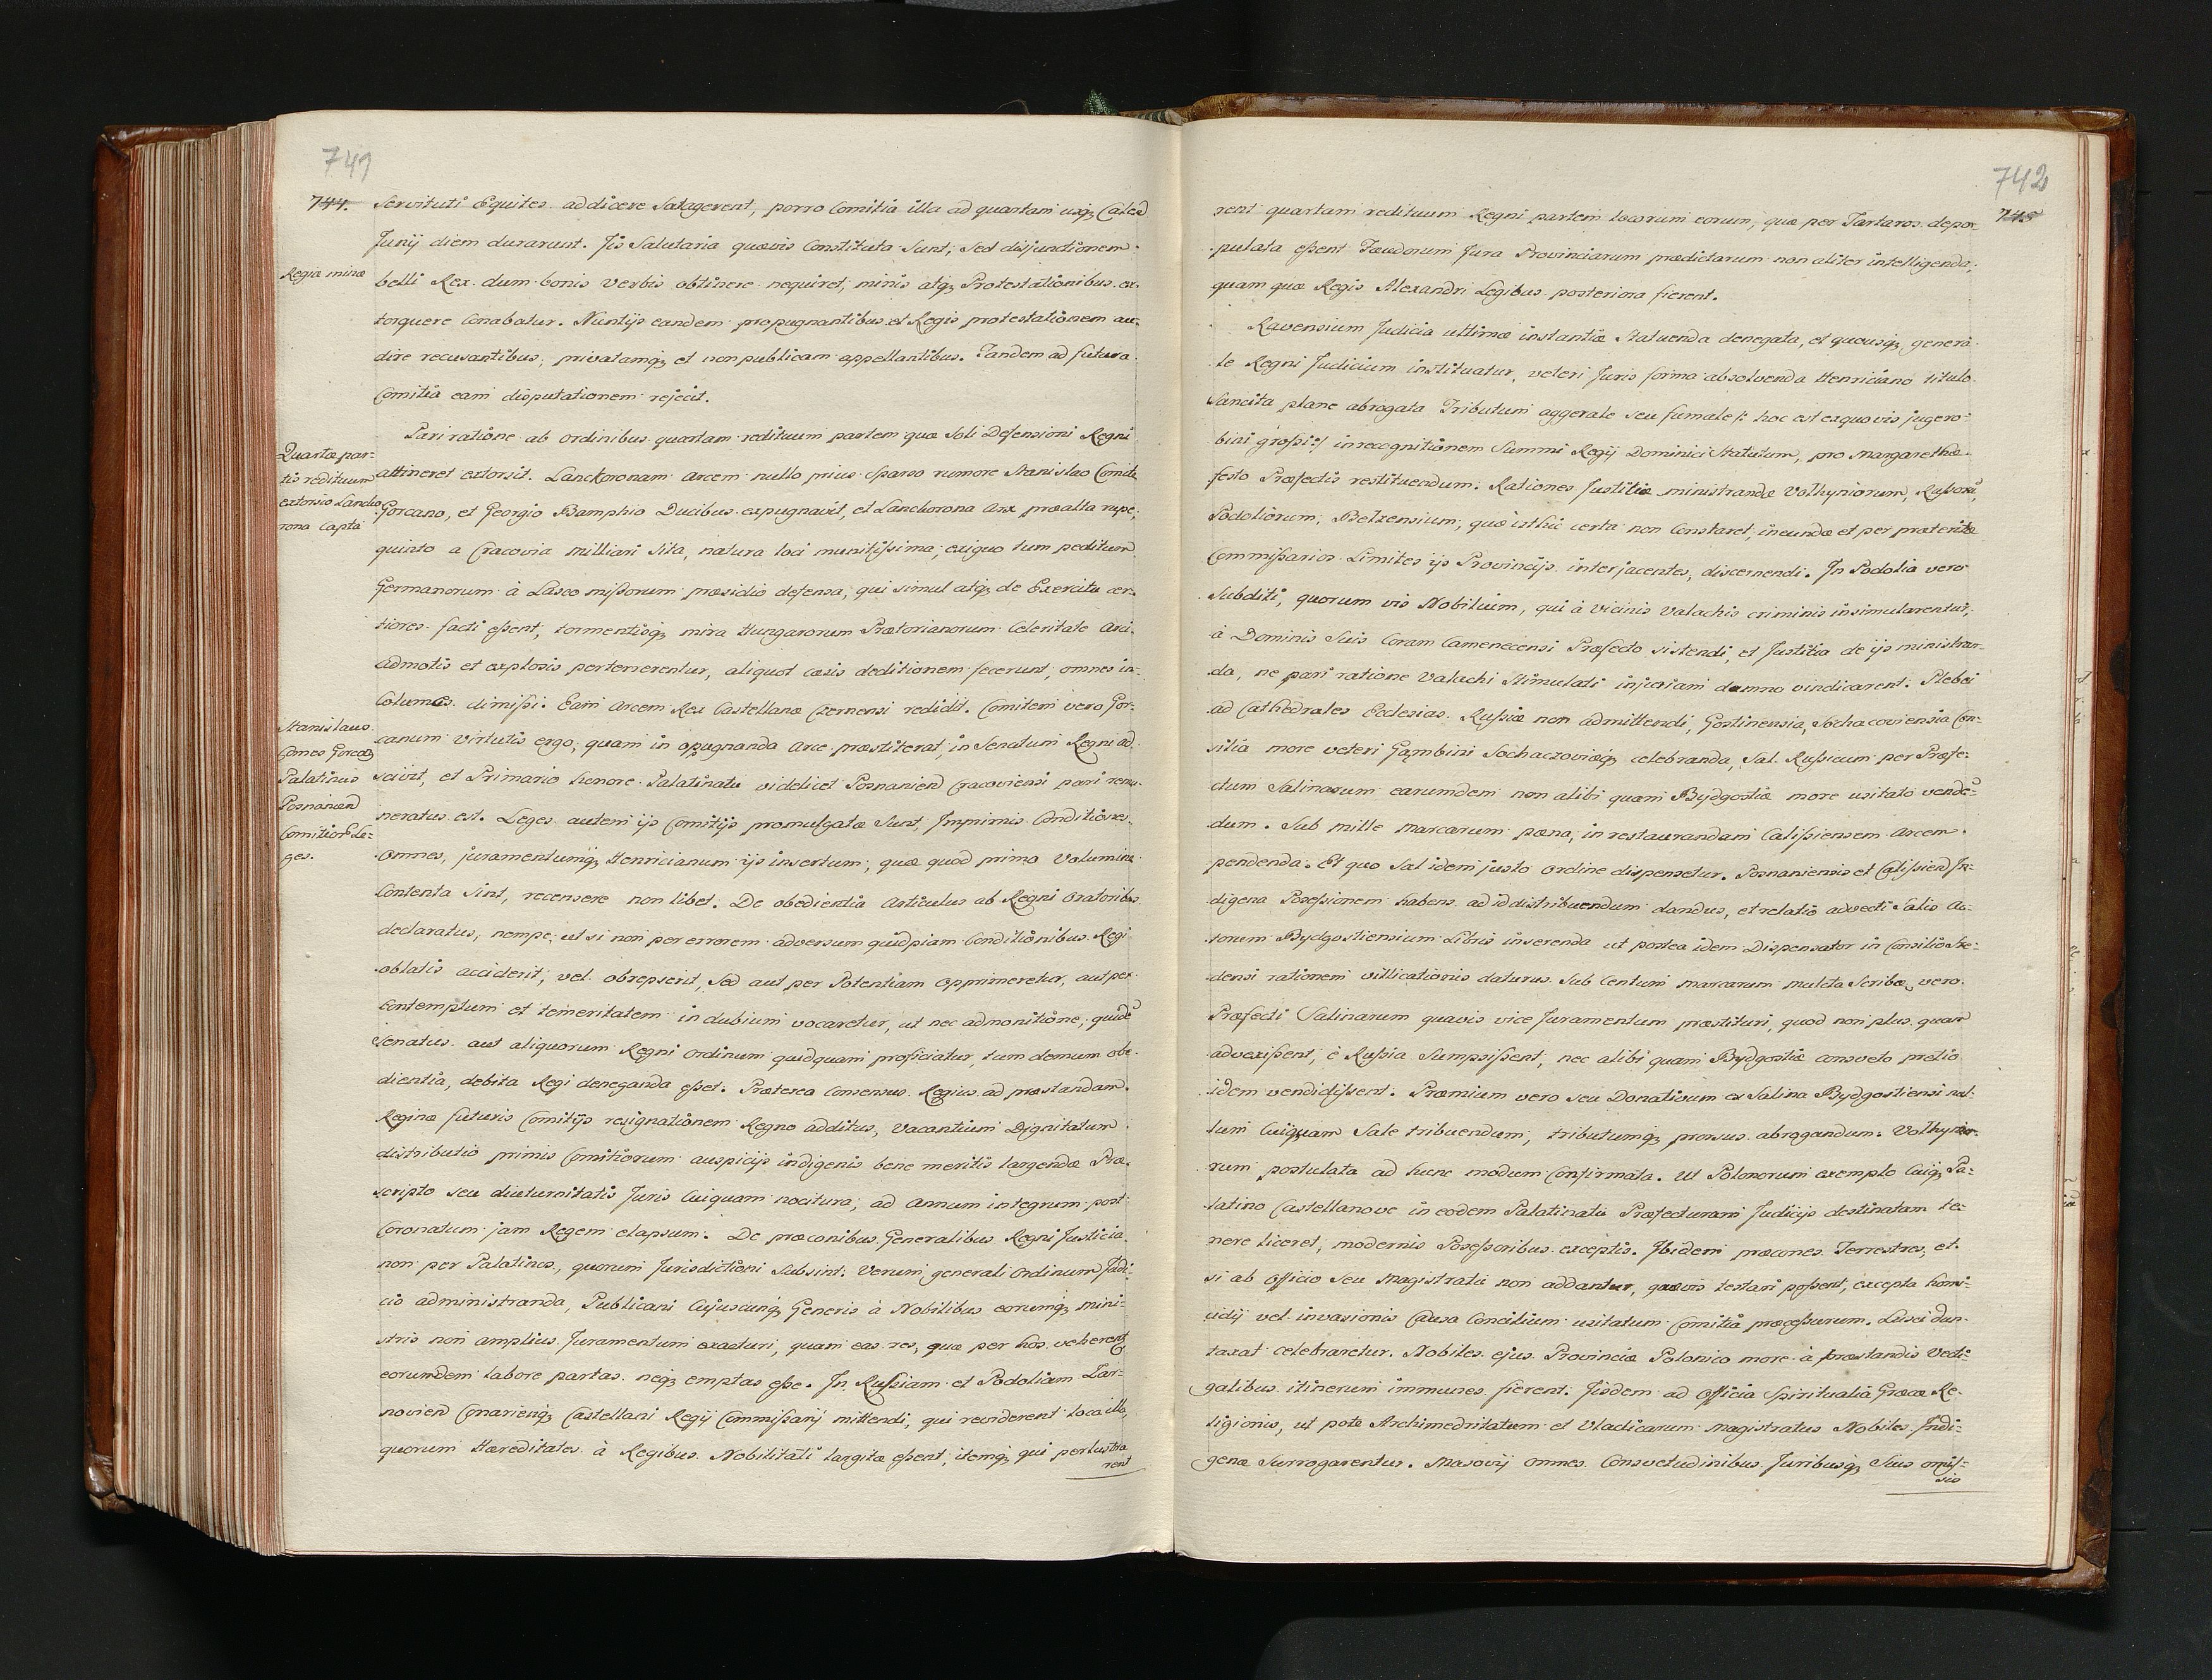 741
744.
Servituti Equites addicere Satagerent, porro Comitia illa ad quartam usq; Calend
Junij diem durarunt. Jis Salutaria quævis Constituta Sunt; Sed disjunctionem
Regiæ minæ
belli Rex dum bonis verbis obtinere nequiret, minis atq; Protestationibus ex-
torquere Conabatur. Nuntijs eandem propugnantibus et Regis protestationem au-
dire recusantibus, privatamq; et non publicam appellantibus. Tandem ad futura
Comitia eam disputationem rejecit.
Quartæ par-
tis redituum
extorsio Lancko
rona capta
Pari ratione ab ordinibus quartam redituum partem quæ Soli Defensioni Regni
attineret extorsit. Lanckoronam Arcem nullo prius Sparso rumore Stanislao Comite
Gorcano, et Georgio Bamphio Ducibus expugnavit, et Lanckorona Arx præalta rupe,
quinto a Cracovia milliari Sita, natura loci munitissima; exiguo tum peditum
Germanorum à Lasco missorum præsidio defensa; qui simul atq; de Exercitu cer-
tiores facti essent, tormentisq; mira Hungarorum Prætorianorum Celeritate Arci
admotis et explosis perterrerentur, aliquot cæsis deditionem fecerunt, omnes in-
columes dimissi. Eam arcem Rex Castellanæ Czernensi redidit. Comitem vero Gor-
Stanislaus
Comes Gorca
Palatinus
Posnanien
Comitior Le-
ges.
canum virtutis ergo, quam in opugnanda Arce præstiterat, in Senatum Regni ad-
scivit, et Primario honore Palatinatu videlicet Posnanien Cracoviensi pari remu-
neratus est. Leges autem ijs Comitijs promulgatæ Sunt, Imprimis Conditiones
omnes, juramentumq; Henricianum ijs insertum, quæ quod primo Volumine
Contenta Sint, recensere non libet. De obedientia Articulus ab Regni Oratoribus
declaratus, nempe, ut si non per errorem adversum quidpiam Conditionibus Regi
oblatis acciderit, vel obrepserit, Sed aut per Potentiam opprimeretur, aut per
Contemptum et temeritatem in dubium vocaretur, ut nec admonitione, quidē
Senatus aut aliquorum Regni Ordinum quidquam proficiatur, tum demum obe-
dientia, debita Regi deneganda esset. Præterea Consensus Regius ad præstandam
Reginæ futuris Comitijs resignationem Regno additus, vacantium Dignitatum
distributio primis Comitiorum auspicijs indigenis bene meritis largendæ Præ-
scripto seu diuturnitatis Juris Cuiquam nocitura, ad Annum integrum post
Coronatum jam Regem elapsum. De præconibus Generalibus Regni Justicia
non per Palatinos, quorum Jurisdictioni Subsint. Verum generali Ordinum Judi-
cio administranda, Publicani Cujuscunq; Generis à Nobilibus eorumq; mini-
stris non amplius Juramentum exacturi, quam eas res, quæ per hos veherent
eorumdem labore partas neq; emptas esse. In Russiam et Podoliam Tar-
novien Conarienq; Castellani Regij Commissarij mittendi, qui reviderent loca illa,
quorum Hæreditates à Regibus Nobilitati largitæ essent, itemq; qui perlustra
rent
742
745
rent quartam redituum Regni partem locorum eorum, quæ per Tartaros depo-
pulata essent Feudorum Jura Provinciarum prædictarum non aliter intelligenda;
quam quæ Regis Alexandri Legibus posteriora fierent.
Ravensium Judicia ultimæ instantiæ Statuenda denegata, et quousq; genera-
le Regni Judicium instituatur, veteri Juris forma absolvenda Henriciano titulo
Sancita plane abrogata Tributum aggerale seu fumale /: hoc est ex quovis jugero
bini grossi :/ in recognitionem Summi Regij Dominici Statutum, pro Margarethæ
festo Præfectis restituendum. Rationes Justitiæ ministrandæ Volhyniorum, Russorū,
Podoliorum, Belzensium, quæ isthic certa non Constaret, ineundæ et per præterita
Commissarios Limites ijs Provincijs interjacentes, discernendi. In Podolia vero
Subditi, quorum vis Nobilium, qui à vicinis Valachis criminis insimularentur,
à Dominis Suis Coram Camenecensi Præfecto sistendi, et Justitia de ijs ministran-
da, ne pari ratione Valachi Stimulati injuriam damno vindicarent. Plebei
ad Cathedrales Ecclesias Russiæ non admittendi, Gostinensia, Sochacoviensia Con-
silia more veteri Gambini Sochaczoviæq; celebranda, Sal Russicum per Præfe-
ctum Salinarum earumdem non alibi quam Bydgostiæ more usitato vendē-
dum. Sub mille marcarum pæna, in restaurandam Calissiensem Arcem
pendenda. Et quo Sal idem justo ordine dispensetur. Posnaniensis et Calissien In-
digena Possessionem habens ad id distribuendum dandus, et relatio advecti Salis Ac-
torum Bydgostiensium Libris inserenda ut postea idem Dispensator in Consilio Sre-
densi rationem villicationis daturus Sub Centum marcarum mulcta Scribæ vero
Præfecti Salinarum quavis vice Juramentum præstituri, quod non plus quam
advexissent, è Russia Sumpsissent, nec alibi quam Bydgostiæ consveto pretio
idem vendidissent. Præmium vero seu Donativum ex Salina Bydgostiensi nul-
lum Cuiquam Sale tribuendum, tributumq; prorsus abrogandum. Volhynio-
rum postulata ad hunc modum Confirmata. Ut Polonorum exemplo Cuiq; Pa-
latino Castellanove in eodem Palatinatu Præfecturam Judicijs destinatam te-
nere liceret, modernis Possessoribus exceptis. Ibidem præcones Terrestres, et-
si ab officio seu Magistratu non addantur, quævis testari possent, excepta homi-
cidij vel invasionis Causa Concilium usitatum Comitia præcessurum. Lusci dun-
taxat celebraretur. Nobiles ejus Provinciæ Polonico more à præstandis vecti-
galibus itinerum immunes fierent. Jisdem ad officia Spiritualia Græcæ Re-
ligionis, ut pote Archimedritatum et Vladicarum Magistratus Nobiles Indi-
genæ Surrogarentur. Masovij omnes Consvetudinibus Juribusq; Suis omis-
sis